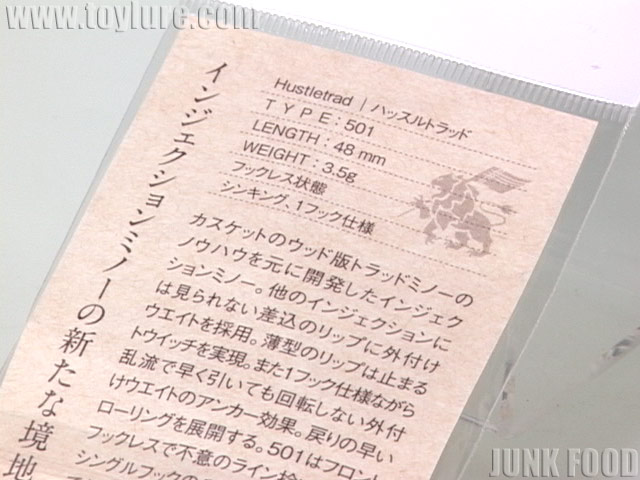 www.toylure.com
インジェクションミノーの新たな境地
Hustletrad｜ハッスルトラッド
TYPE：501
LENGTH：48 mm
WEIGHT：3.5g
フックレス状態
シンキング、1フック仕様
カスケットのウッド版トラッドミノーの
ノウハウを元に開発したインジェク
ションミノー。他のインジェクションに
は見られない差込のリップに外付け
ウエイトを採用。薄型のリップは止まる
トウイッチを実現。また1フック仕様ながら
乱流で早く引いても回転しない外付
けウエイトのアンカー効果。戻りの早い
ローリングを展開する。501はフロント
フックレスで不意のライン
シングルフックの
JUNK FOOD